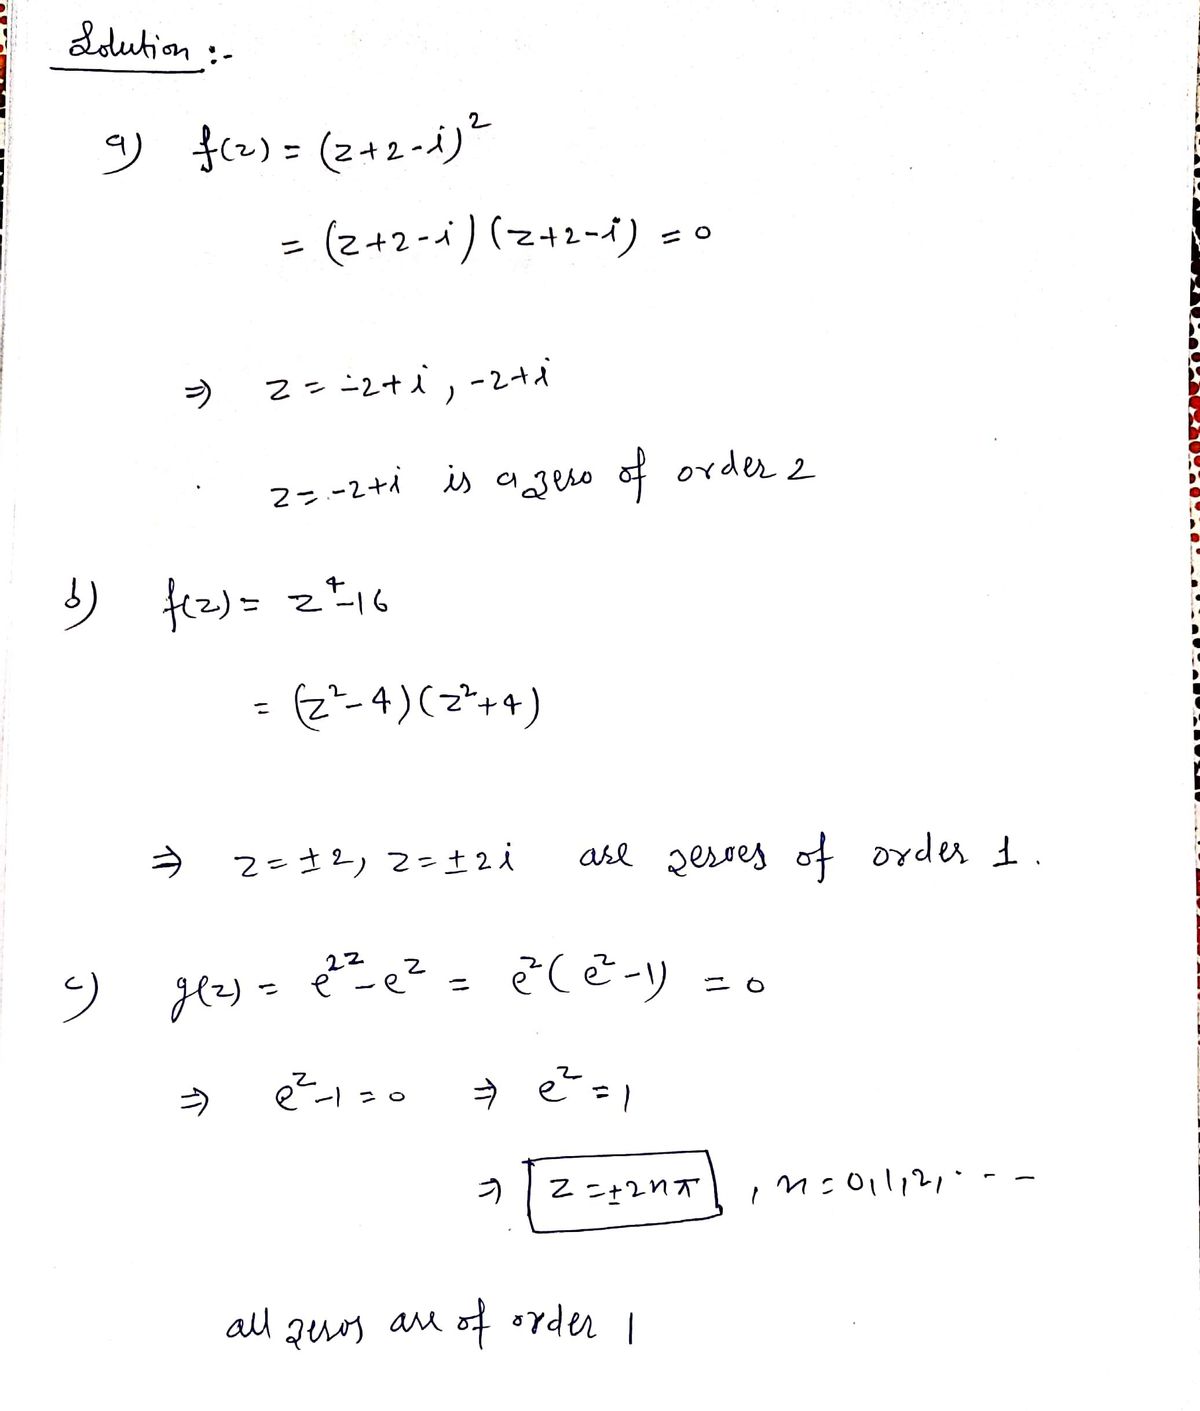 Solution :-
a) f(z) = (z+2-i)²
= (z+2-i)(z+2-i) = 0
⇒ z = -2+i, -2+i
z = -2+i is a zero of order 2
b) f(z) = z⁴-16
= (z²-4)(z²+4)
⇒ z = ±2, z = ±2i are zeroes of order 1.
c) g(z) = e^{2z} - e^z = e^z(e^z - 1) = 0
⇒ e^z - 1 = 0 ⇒ e^z = 1
⇒ z = ±2nπ , n = 0,1,2, - - -
all zeros are of order 1